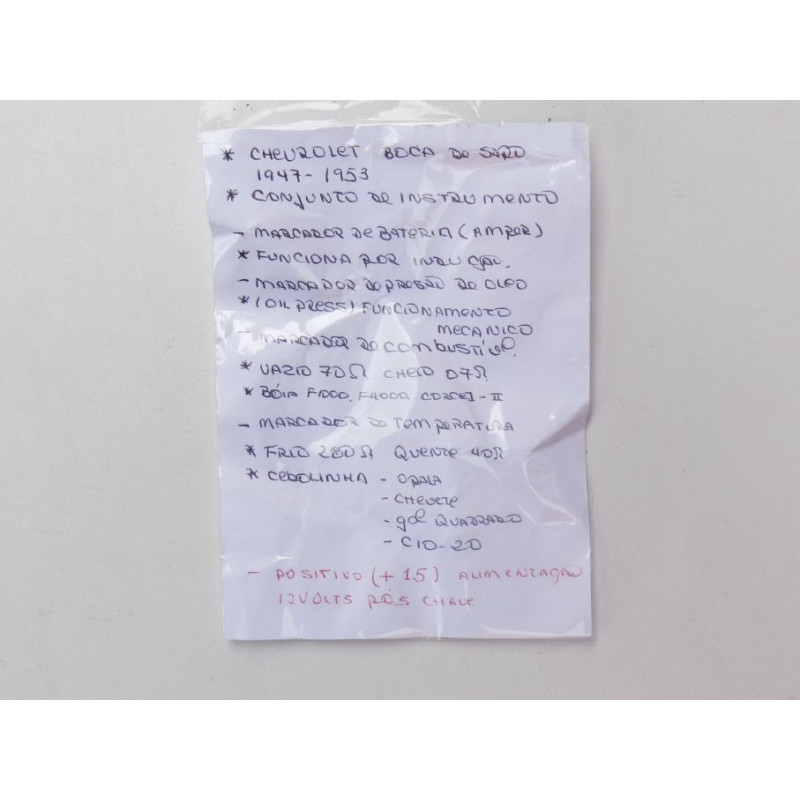 * CHEVROLET BOCA DO SAPO
1947-1953
* CONJUNTO DE INSTRUMENTO
- MARCADOR DE BATERIA (AMPER)
* FUNCIONA POR INDUÇÃO.
- MARCADOR DE PRESÃO DE OLEO
* (OIL PRESS) FUNCIONAMENTO
MECANICO
- MARCADOR DE COMBUSTÍVEL.
* VAZIO 70Ω CHEIO 07Ω
* BÓIA F1000, F4000, CORCEL-II
- MARCADOR DE TEMPERATURA
* FRIO 280Ω QUENTE 40Ω
* CEBOLINHA - OPALA
- CHEVETE
- gol QUADRADO
- C10-20
- POSITIVO (+15) ALIMENTAÇÃO
12VOLTS PÓS CHAVE.